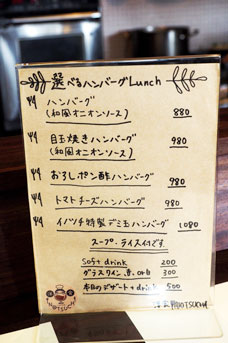 選べるハンバーグLunch
ハンバーグ
(和風オニオンソース) 880
目玉焼きハンバーグ 980
(和風オニオンソース)
おろしポン酢ハンバーグ 980
トマトチーズハンバーグ 980
イノツチ特製デミ玉ハンバーグ 1080
スープ、ライス付です。
Soft drink 200
グラスワイン 赤or白 300
本日のデザート+drink 500